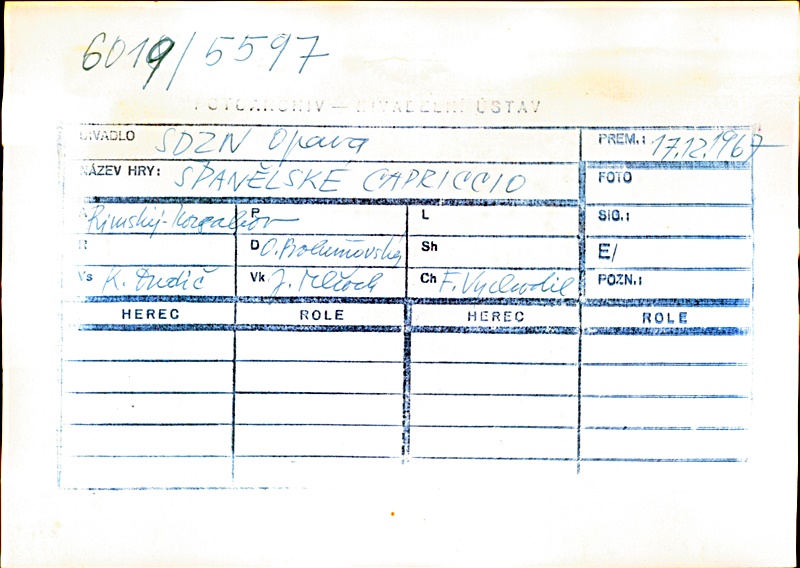 6019/5597
FOTOARCHIV — DIVADELNÍ ÚSTAV
DIVADLO SDZN Opava PREM.: 17.12.1967
NÁZEV HRY: ŠPANĚLSKÉ CAPRICCIO FOTO
A Rimskij-Korsakov P L SIG.:
R D O. Bohuňovský Sh E/
Vs K. Dudič Vk J. Mlčoch Ch F. Vychodil POZN.:
HEREC ROLE HEREC ROLE